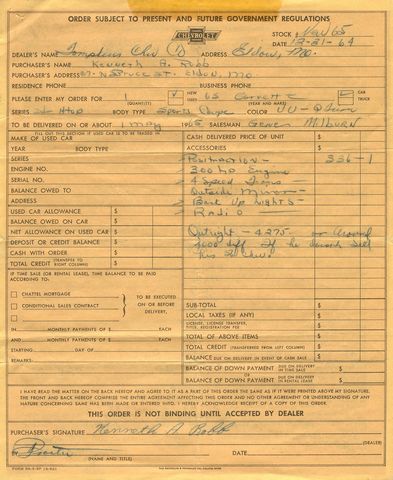 ORDER SUBJECT TO PRESENT AND FUTURE GOVERNMENT REGULATIONS
CHEVROLET
STOCK NO.
DATE 12-31-64
DEALER'S NAME Tompkins Chev Co ADDRESS Eldon, Mo.
PURCHASER'S NAME Kenneth A. Robb
PURCHASER'S ADDRESS N Spruce St. Eldon, Mo
RESIDENCE PHONE BUSINESS PHONE
PLEASE ENTER MY ORDER FOR 1 (QUANTITY) NEW USED 65 Corvette (YEAR AND MAKE) CAR TRUCK
SERIES BODY TYPE Sports Coupe COLOR
TO BE DELIVERED ON OR ABOUT 1 May 1965 SALESMAN Gene Milburn
FILL OUT THIS SECTION IF USED CAR IS TO BE TRADED IN
MAKE OF USED CAR
CASH DELIVERED PRICE OF UNIT $
YEAR BODY TYPE
ACCESSORIES
SERIES
Positraction 336-1
ENGINE NO.
300 HP Engine
SERIAL NO.
4 Speed Trans
BALANCE OWED TO
Outside Mirror
ADDRESS
Back Up Lights
USED CAR ALLOWANCE $
Radio
BALANCE OWED ON CAR $
NET ALLOWANCE ON USED CAR $
Outright - 4275 - or around
DEPOSIT OR CREDIT BALANCE $
2000 diff if he sell
CASH WITH ORDER $
his
TOTAL CREDIT (TRANSFER TO RIGHT COLUMN) $
IF TIME SALE (OR RENTAL LEASE), TIME BALANCE TO BE PAID ACCORDING TO:
CHATTEL MORTGAGE
CONDITIONAL SALES CONTRACT
TO BE EXECUTED ON OR BEFORE DELIVERY,
SUB-TOTAL $
LOCAL TAXES (IF ANY) $
IN MONTHLY PAYMENTS OF $ EACH
LICENSE, LICENSE TRANSFER, TITLE, REGISTRATION FEE $
AND MONTHLY PAYMENTS OF $ EACH
TOTAL OF ABOVE ITEMS $
STARTING DAY OF
TOTAL CREDIT (TRANSFERRED FROM LEFT COLUMN) $
REMARKS:
BALANCE DUE ON DELIVERY IN EVENT OF CASH SALE $
BALANCE OF DOWN PAYMENT DUE ON DELIVERY IN TIME SALE $
BALANCE OF DOWN PAYMENT DUE ON DELIVERY IN RENTAL LEASE $
I HAVE READ THE MATTER ON THE BACK HEREOF AND AGREE TO IT AS A PART OF THIS ORDER THE SAME AS IF IT WERE PRINTED ABOVE MY SIGNATURE.
THE FRONT AND BACK HEREOF COMPRISE THE ENTIRE AGREEMENT AFFECTING THIS ORDER AND NO OTHER AGREEMENT OR UNDERSTANDING OF ANY
NATURE CONCERNING SAME HAS BEEN MADE OR ENTERED INTO. I HEREBY ACKNOWLEDGE RECEIPT OF A COPY OF THIS ORDER.
THIS ORDER IS NOT BINDING UNTIL ACCEPTED BY DEALER
PURCHASER'S SIGNATURE Kenneth A Robb
(DEALER)
DATE
(NAME AND TITLE)